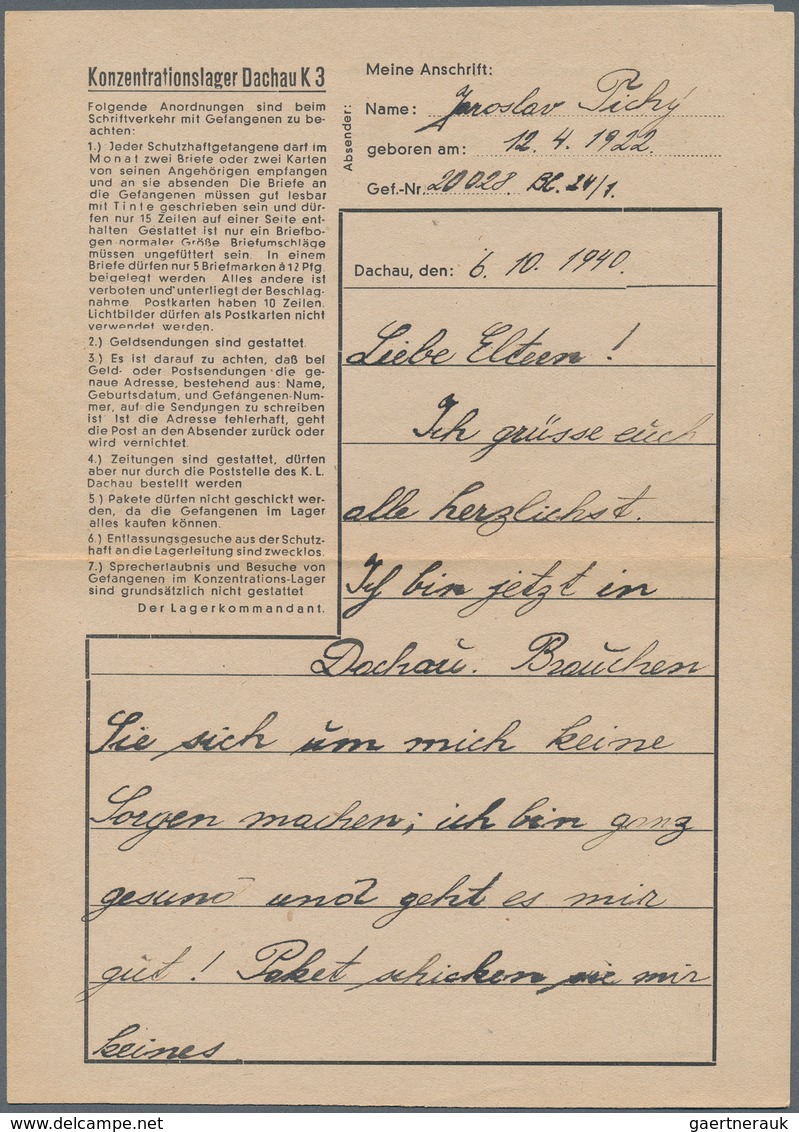 Konzentrationslager Dachau K 3
Folgende Anordnungen sind beim
Schriftverkehr mit Gefangenen zu be-
achten:
1.) Jeder Schutzhaftgefangene darf im
Monat zwei Briefe oder zwei Karten
von seinen Angehörigen empfangen
und an sie absenden Die Briefe an
die Gefangenen müssen gut lesbar
mit Tinte geschrieben sein und dür-
fen nur 15 Zeilen auf einer Seite ent-
halten Gestattet ist nur ein Briefbo-
gen normaler Größe Briefumschläge
müssen ungefüttert sein. In einem
Briefe dürfen nur 5 Briefmarkon à 12 Pfg.
beigelegt werden. Alles andere ist
verboten und unterliegt der Beschlag-
nahme. Postkarten haben 10 Zeilen.
Lichtbilder dürfen als Postkarten nicht
verwendet werden.
2.) Geldsendungen sind gestattet.
3.) Es ist darauf zu achten, daß bei
Geld- oder Postsendungen die ge-
naue Adresse, bestehend aus: Name,
Geburtsdatum, und Gefangenen-Num-
mer, auf die Sendungen zu schreiben
ist Ist die Adresse fehlerhaft, geht
die Post an den Absender zurück oder
wird vernichtet.
4.) Zeitungen sind gestattet, dürfen
aber nur durch die Poststelle des K. L.
Dachau bestellt werden
5) Pakete dürfen nicht geschickt wer-
den, da die Gefangenen im Lager
alles kaufen können.
6.) Entlassungsgesuche aus der Schutz-
haft an die Lagerleitung sind zwecklos.
7.) Sprecherlaubnis und Besuche von
Gefangenen im Konzentrations-Lager
sind grundsätzlich nicht gestattet
Der Lagerkommandant.
Absender:
Meine Anschrift:
Name: Jaroslav Tichý
geboren am: 12. 4. 1922.
Gef.-Nr. 20028. Bl. 24/1.
Dachau, den: 6. 10. 1940.
Liebe Eltern!
Ich grüsse euch
alle herzlichst.
Ich bin jetzt in
Dachau. Brauchen
Sie sich um mich keine
Sorgen machen; ich bin ganz
gesund und geht es mir
gut! Paket schicken sie mir
keines.
gaertnerauk